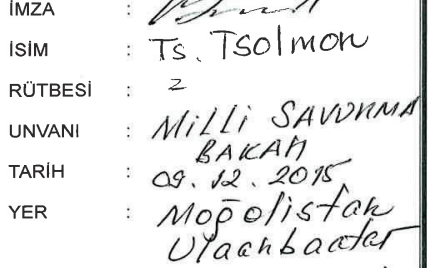 İMZA :
İSİM : Ts. Tsolmon
RÜTBESİ : 2
UNVANI : Milli SAVUNMA
BAKANI
TARİH : 09.12.2015
YER : Moğolistan
Ulaanbaatar